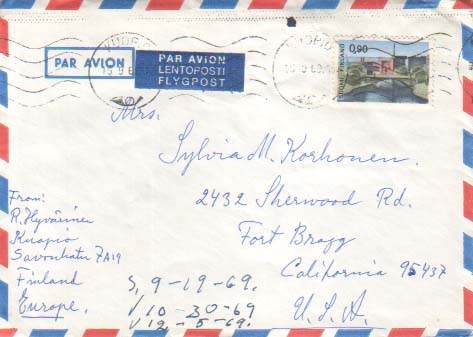 PAR AVION
PAR AVION
LENTOPOSTI
FLYGPOST
0,90
FINLAND
Mrs.
Sylvia M. Korhonen.
2432 Sherwood Rd.
Fort Bragg
California 95437
U.S.A.
From:
R. Hyvärinen
Kuopio
Savonkatu 7A19
Finland
Europe.
S, 9-19-69.
√ 10-30-69
√ 12-5-69.